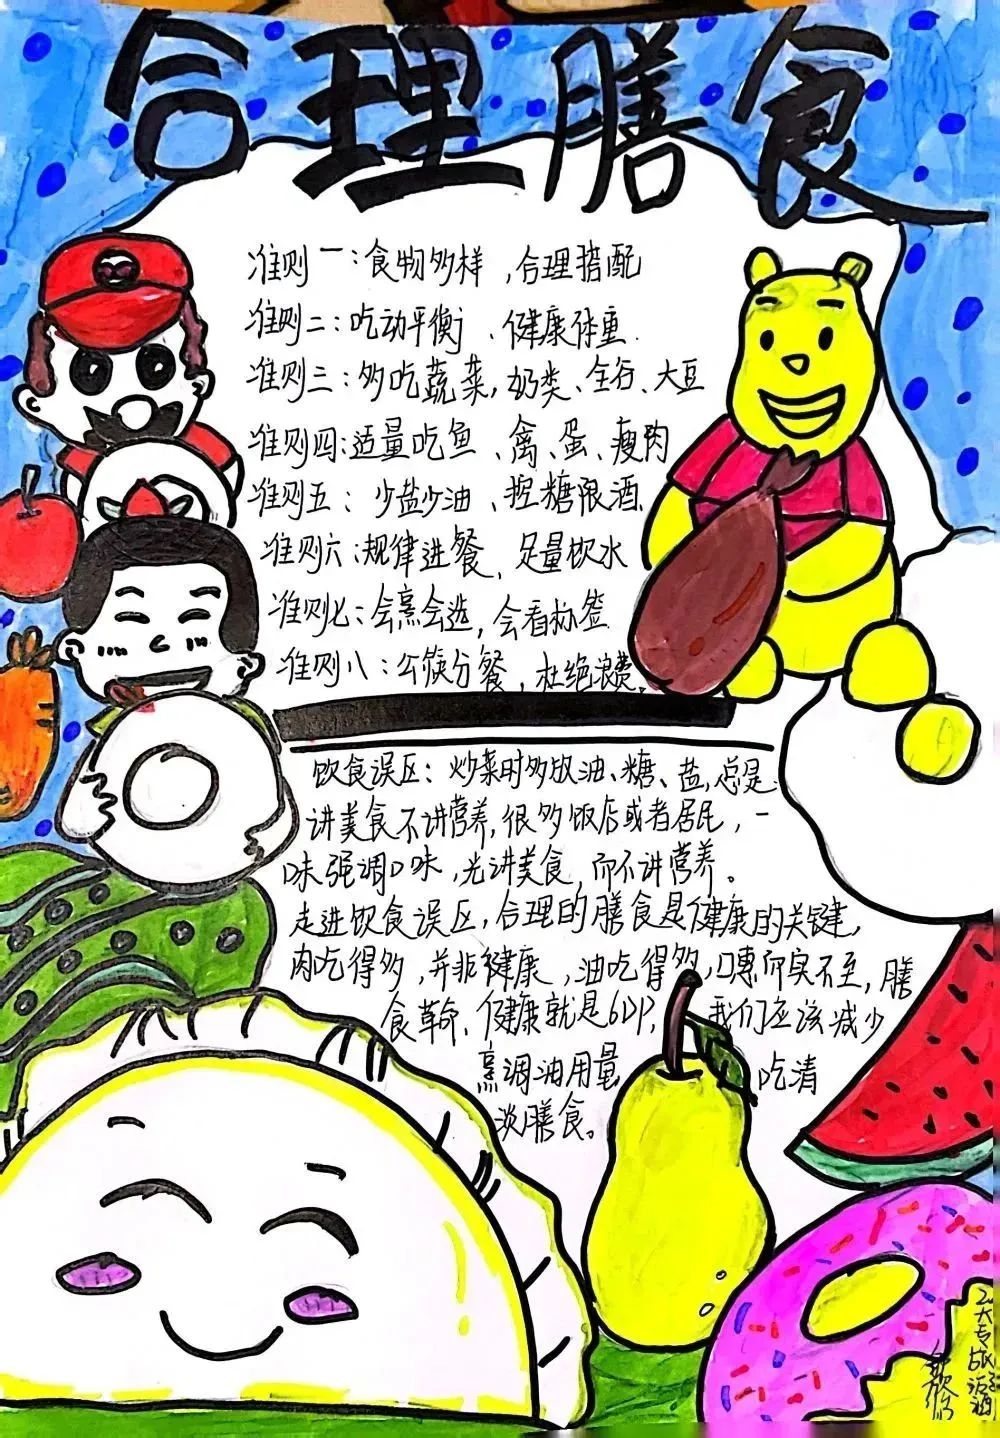 合理膳食
准则一:食物多样,合理搭配
准则二:吃动平衡、健康体重.
准则三:多吃蔬菜,奶类、全谷、大豆
准则四:适量吃鱼、禽、蛋、瘦肉
准则五:少盐少油、控糖限酒.
准则六:规律进餐,足量饮水
准则七:会烹会选,会看标签
准则八:公筷分餐,杜绝浪费.
饮食误区:炒菜时多放油、糖、盐,总是
讲美食不讲营养,很多饭店或者居民,一
味强调口味,光讲美食,而不讲营养。
走进饮食误区,合理的膳食是健康的关键,
肉吃得多,并非健康,油吃得多,口惠而实不至,膳
食革命,健康就是GDP,我们应该减少
烹调油用量 吃清
淡膳食。